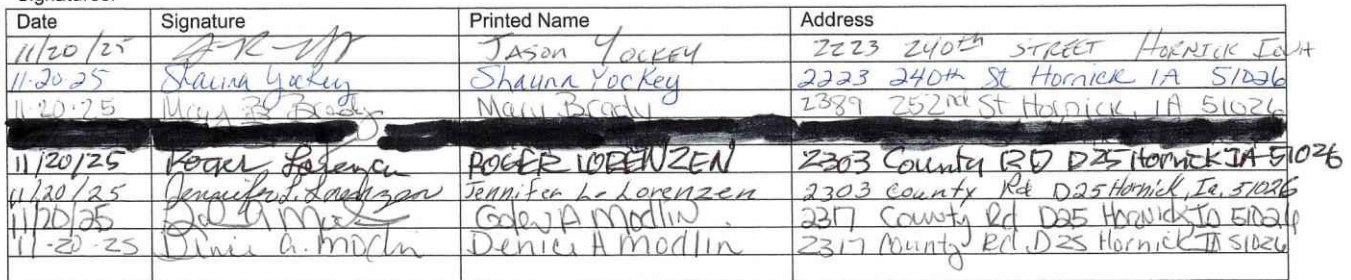 Signatures:
Date Signature Printed Name Address
11/20/25 JASON YOCKEY 2223 240th STREET HORNICK IOWA
11-20-25 Shauna Yockey Shauna Yockey 2223 240th St Hornick IA 51026
11-20-25 Mary B Brady Mary Brady 2389 252nd St Hornick, IA 51026
11/20/25 Roger Lorenzen ROGER LORENZEN 2303 County RD D25 Hornick IA 51026
11/20/25 Jennifer L. Lorenzen Jennifer L. Lorenzen 2303 County Rd D25 Hornick, Ia. 51026
11/20/25 A Modlin 2317 County Rd D25 Hornick Ia 51026
11-20-25 Denice A. Modlin Denice A Modlin 2317 County Rd. D25 Hornick IA 51026